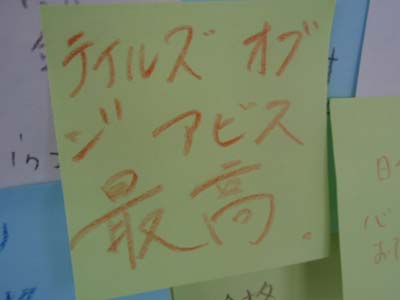 テイルズ オブ
ジ アビス
最高.
合格